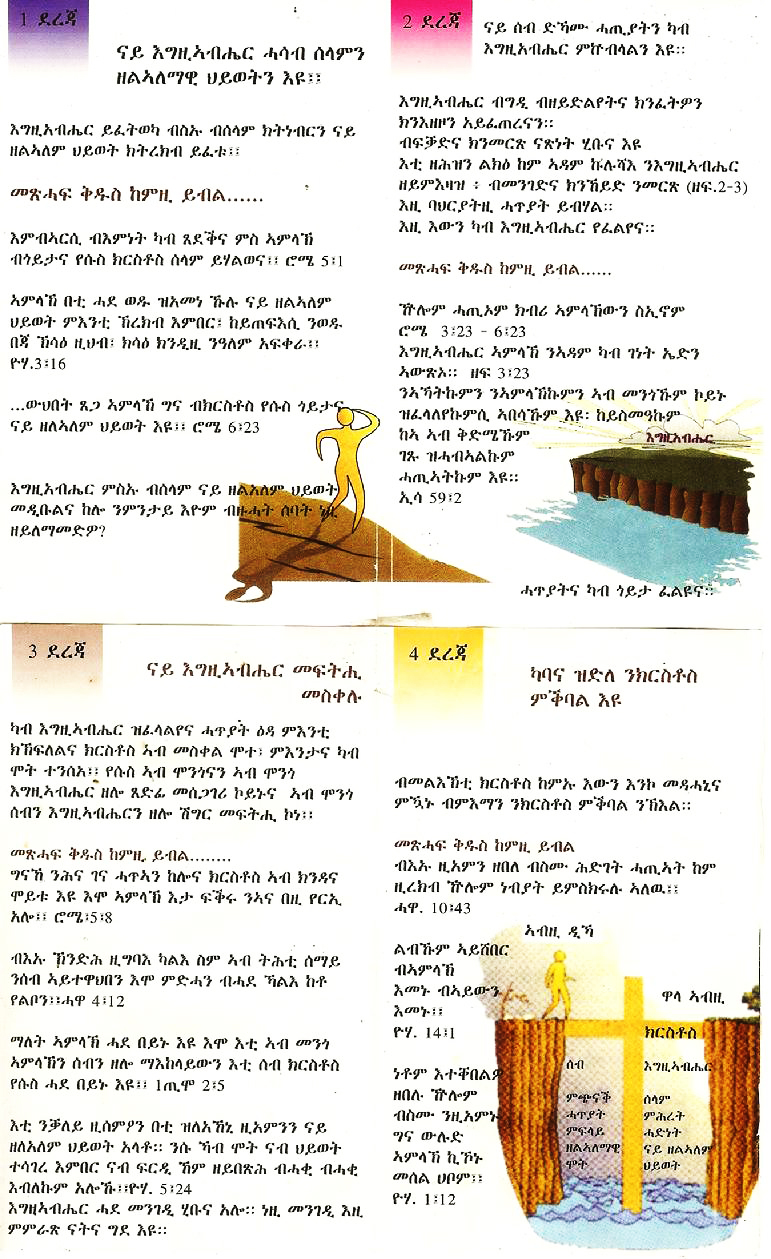 1 ደረጃ
ናይ እግዚኣብሔር ሓሳብ ሰላምን
ዘልኣለማዊ ህይወትን እዩ፡፡
እግዚኣብሔር ይፈትወካ ብስኡ ብሰላም ክትነብርን ናይ
ዘልኣለም ህይወት ክትረክብ ይፈቱ፡፡
መጽሓፍ ቅዱስ ከምዚ ይብል......
እምብኣርሲ ብእምነት ካብ ጸደቅና ምስ ኣምላኽ
ብጎይታና የሱስ ክርስቶስ ሰላም ይሃልወና፡፡ ሮሜ 5፡1
ኣምላኽ በቲ ሓደ ወዱ ዝአመነ ኹሉ ናይ ዘልኣለም
ህይወት ምእንቲ ኽረክብ እምበር፤ ከይጠፍእሲ ንወዱ
በጃ ኽሳዕ ዚህብ፡ ክሳዕ ክንዲዚ ንዓለም አፍቀራ፡፡
ዮሃ.3፡16
...ውህበት ጸጋ ኣምላኽ ግና ብክርስቶስ የሱስ ጎይታና
ናይ ዘለኣለም ህይወት እዩ፡፡ ሮሜ 6፡23
እግዚኣብሔር ምስኡ ብሰላም ናይ ዘልአለም ህይወት
መዲቡልና ከሎ ንምንታይ እዮም ብዙሓት ሰባት ነዚ
ዘይለማመድዎ?
2 ደረጃ
ናይ ሰብ ድኻሙ ሓጢያትን ካብ
እግዚአብሔር ምኩብላልን እዩ፡፡
እግዚአብሔር ብግዲ ብዘይድልየትና ክንፈትዎን
ክንእዘዞን አይፈጠረናን፡፡
ብፍቓድና ክንመርጽ ናጽነት ሂቡና እዩ
እቲ ዘሕዝን ልክዕ ከም ኣዳም ኩሉሻእ ንእግዚኣብሔር
ዘይምእዛዝ ፡ ብመንገድና ክንኸይድ ንመርጽ (ዘፍ.2-3)
እዚ ባህርያትዚ ሓጥያት ይብሃል፡፡
እዚ እውን ካብ እግዚአብሔር የፈልየና፡፡
መጽሓፍ ቅዱስ ከምዚ ይብል......
ኵሎም ሓጢኦም ክብሪ ኣምላኽውን ስኢኖም
ሮሜ 3፡23 - 6፡23
እግዚአብሔር ኣምላኽ ንኣዳም ካብ ገነት ኤድን
ኣውጽኦ፡፡ ዘፍ 3፡23
ንኣኻትኩምን ንኣምላኽኩምን ኣብ መንጎኹም ኮይኑ
ዝፈላለየኩምሲ ኣበሳኹም እዩ፡ ከይስመዓኩም
ከኣ ኣብ ቅድሚኹም
ገጹ ዝሓብኣልኩም
ሓጢኣትኩም እዩ፡፡
ኢሳ 59፡2
እግዚአብሔር
ሓጥያትና ካብ ጎይታ ፈልዩና፡፡
3 ደረጃ
ናይ እግዚኣብሔር መፍትሒ
መስቀሉ
ካብ እግዚአብሔር ዝፈላልየና ሓጥያት ዕዳ ምእንቲ
ክኽፍለልና ክርስቶስ ኣብ መስቀል ሞተ፡ ምእንታና ካብ
ሞት ተንስአ፡፡ የሱስ ኣብ ሞንጎናን ኣብ ሞንጎ
እግዚአብሔር ዘሎ ጸድፊ መሰጋገሪ ኮይኑና ኣብ ሞንጎ
ሰብን እግዚአብሔርን ዘሎ ሽግር መፍትሒ ኮነ፡፡
መጽሓፍ ቅዱስ ከምዚ ይብል........
ግናኸ ንሕና ገና ሓጥኣን ከሎና ክርስቶስ ኣብ ክንዳና
ሞይቱ እዩ እሞ ኣምላኽ እታ ፍቕሩ ንኣና በዚ የርኢ
አሎ፡፡ ሮሜ፡5፡8
ብእኡ ኸንድሕ ዚግባእ ካልእ ስም ኣብ ትሕቲ ሰማይ
ንሰብ ኣይተዋህበን እሞ ምድሓን ብሓደ ኻልእ ከቶ
የልቦን፡፡ሓዋ 4፡12
ማለት ኣምላኽ ሓደ በይኑ እዩ እሞ እቲ ኣብ መንጎ
ኣምላኽን ሰብን ዘሎ ማእከላይውን እቲ ሰብ ክርስቶስ
የሱስ ሓደ በይኑ እዩ፡፡ 1ጢሞ 2፡5
እቲ ንቓለይ ዚሰምዖን በቲ ዝለአኸኒ ዚአምንን ናይ
ዘለአለም ህይወት ኣላቶ፡፡ ንሱ ኻብ ሞት ናብ ህይወት
ተሳገረ እምበር ናብ ፍርዲ ኸም ዘይበጽሕ ብሓቂ ብሓቂ
እብለኩም አሎኹ፡፡ዮሃ. 5፡24
እግዚአብሔር ሓደ መንገዲ ሂቡና አሎ፡፡ ነዚ መንገዲ እዚ
ምምራጽ ናትና ግደ እዩ፡፡
4 ደረጃ
ካባና ዝድለ ንክርስቶስ
ምቕባል እዩ
ብመልእኽቲ ክርስቶስ ከምኡ እውን እንኮ መዳሓኒና
ምዃኑ ብምእማን ንክርስቶስ ምቕባል ንኽእል፡፡
መጽሓፍ ቅዱስ ከምዚ ይብል
ብእኡ ዚአምን ዘበለ ብስሙ ሕድገት ሓጢኣት ከም
ዚረክብ ኵሎም ነብያት ይምስክሩሉ ኣለዉ፡፡
ሓዋ. 10፡43
ልብኹም ኣይሸበር
ብኣምላኽ
እመኑ ብኣይውን
እመኑ፡፡
ዮሃ. 14፡1
ነቶም እተቐበልዎ
ዘበሉ ኵሎም
ብስሙ ንዚአምኑ
ግና ውሉድ
ኣምላኽ ኪኾኑ
መሰል ሀቦም፡፡
ዮሃ. 1፡12
ኣብዚ ዲኻ
ዋላ ኣብዚ
ክርስቶስ
ሰብ
እግዚኣብሔር
ምጭናቕ
ሓጥያት
ምፍላይ
ዘልኣለማዊ
ሞት
ሰላም
ምሕረት
ሓድነት
ናይ ዘልአለም
ህይወት